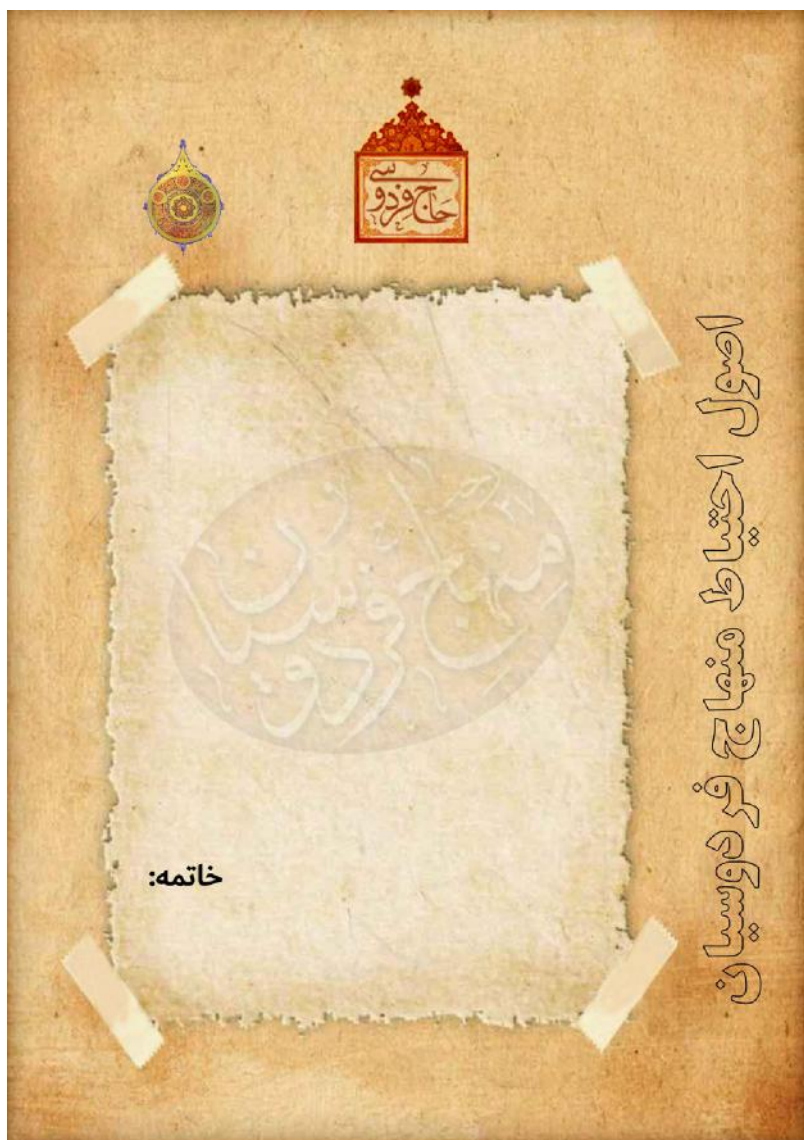 حاج فردوسی
اصول احتیاط منهاج فردوسیان
منهاج فردوسیان
خاتمه: